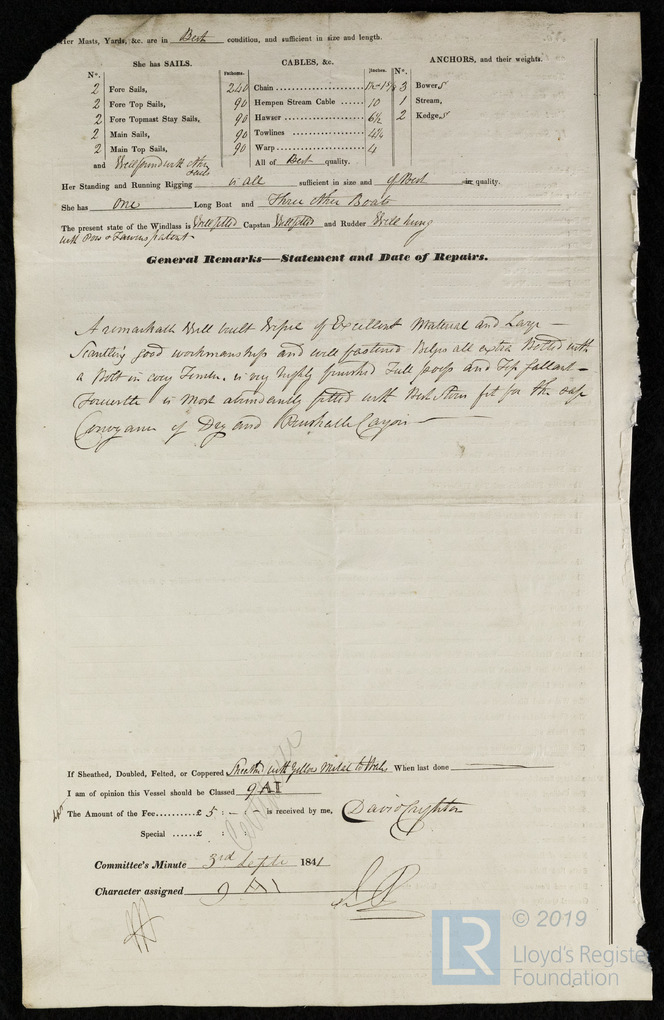 Her Masts, Yards, &c. are in Best condition, and sufficient in size and length.
She has SAILS.
CABLES, &c.
ANCHORS, and their weights.
No.
Fathoms.
Inches.
No.
2 Fore Sails,
2 Fore Top Sails,
2 Fore Topmast Stay Sails,
2 Main Sails,
2 Main Top Sails,
and Well found with other Sails
240 Chain
90 Hempen Stream Cable ...... 10
90 Hawser 6½
90 Towlines 4¼
90 Warp 4
All of Best quality.
3 Bowers
1 Stream,
2 Kedges
Her Standing and Running Rigging is all sufficient in size and of Best in quality.
She has one Long Boat and Three other Boats
The present state of the Windlass is Well fitted Capstan Well fitted and Rudder Well hung
with patent
General Remarks—Statement and Date of Repairs.
A remarkable Well built of Excellent Material and Large
Scantling good workmanship and well fastened Bilges all extra Bolted with
a Bolt in every Timber. is very highly finished Full poop and Top gallant
Forecastle is Most abundantly fitted with Best Stores fit for the safe
Conveyance of Dry and Perishable Cargoes
If Sheathed, Doubled, Felted, or Coppered Sheathed with Yellow Metal to When last done
I am of opinion this Vessel should be Classed 9 A1
The Amount of the Fee......£ 5 : - : - is received by me, David Crighton
Special ......£ : :
Committee's Minute 3rd Septr 1841
Character assigned 9 A1
LR © 2019
Lloyd's Register
Foundation